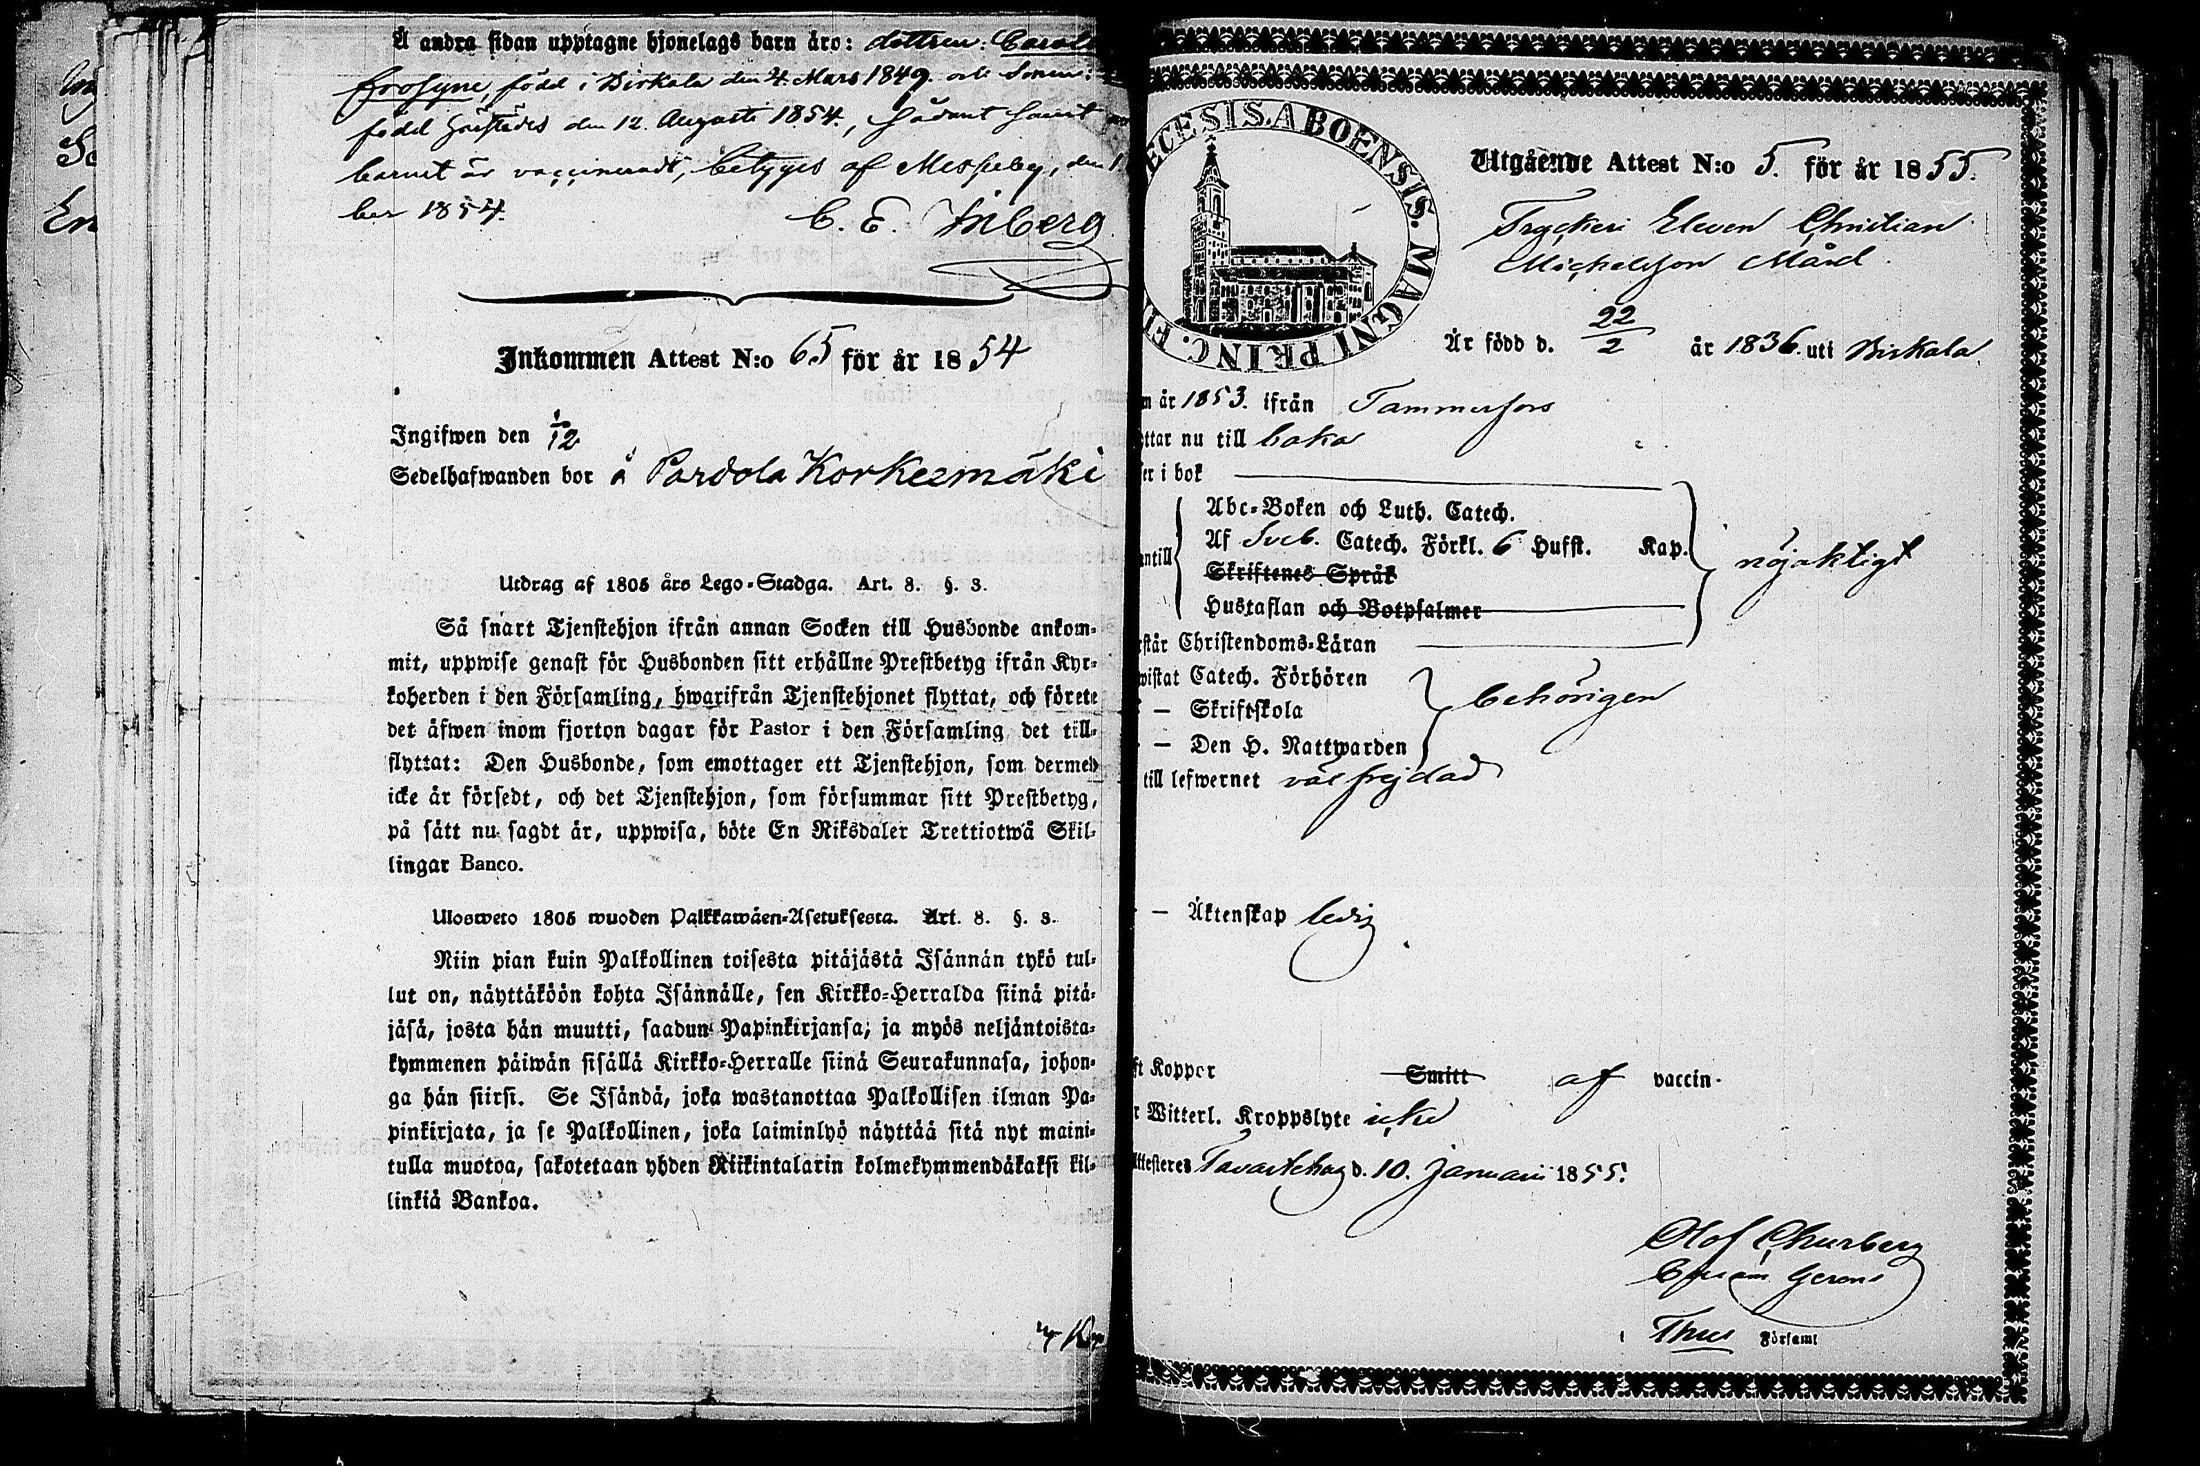 Å andra sidan upptagne hjonelags barn äro: dottren: Carol
Erosyne, född i Birkala den 4 Mars 1849. och Sonen:
född härstädes den 12. Augusti 1854., sådant samt
barnet är vaccineradt, betygas af Messuby, den 1
ber 1854.
C. E. Inberg
Inkommen Attest N:o 65 för år 1854
Ingifwen den 1/12
Sedelhafwanden bor å Pardola Korkeemäki
Utdrag af 1805 års Lego-Stadga. Art. 8. §. 3.
Så snart Tjenstehjon ifrån annan Socken till Husbonde ankom-
mit, uppwise genast för Husbonden sitt erhållne Prestbetyg ifrån Kyr-
koherden i den Församling, hwarifrån Tjenstehjonet flyttat, och förete
det äfwen inom fjorton dagar för Pastor i den Församling det till-
flyttat: Den Husbonde, som emottager ett Tjenstehjon, som dermed
icke är försedt, och det Tjenstehjon, som försummar sitt Prestbetyg,
på sätt nu sagdt är, uppwisa, böte En Riksdaler Trettiotwå Skil-
lingar Banco.
Ulosweto 1805 wuoden Palkkawäen-Asetuksesta. Art. 8. §. 3.
Niin pian kuin Palkollinen toisesta pitäjästä Isännän tykö tul-
lut on, näyttäköön kohta Isännälle, sen Kirkko-Herralda siinä pitä-
jäsä, josta hän muutti, saadun Papinkirjansa; ja myös neljäntoista-
kymmenen päiwän sisällä Kirkko-Herralle siinä Seurakunnasa, johon-
ga hän siirsi. Se Isändä, joka wastanottaa Palkollisen ilman Pa-
pinkirjata, ja se Palkollinen, joka laiminlyö näyttää sitä nyt maini-
tulla muotoa, sakotetaan yhden Riikintalarin kolmekymmendäkaksi kil-
linkiä Bankoa.
ECESIS. ABOENSIS. MAGNI PRINC. FI
Utgående Attest N:o 5. för år 1855.
Tryckeri Eleven Christian
Michelsson Mård.
Är född d. 22/2 år 1836. uti Birkala
m år 1853. ifrån Tammerfors
ttar nu till baka
er i bok
Abc-Boken och Luth. Catech.
antill Af Sveb. Catech. Förkl. 6 Hufst. Kap. nöjaktigt
Skriftenes Språk
Hustaflan och Botpsalmer
rstår Christendoms-Läran
wistat Catech. Förhören
— Skriftskola behörigen
— Den H. Nattwarden
till lefwernet väl frejdad
— Äktenskap ledig
ft Koppor Smitt af vaccin.
r Witterl. Kroppslyte icke
Attesteres Tavastehus d. 10. Januari 1855.
Olof Churberg
Thus Församl